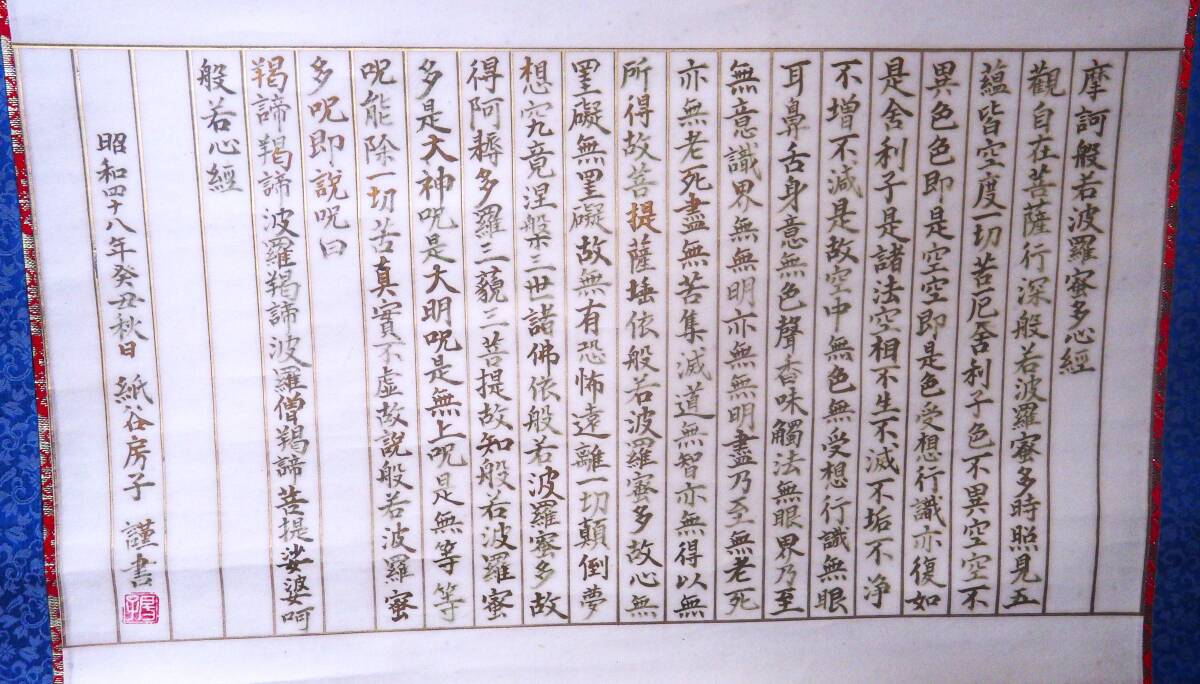 摩訶般若波羅蜜多心經
觀自在菩薩行深般若波羅蜜多時照見五
蘊皆空度一切苦厄舍利子色不異空空不
異色色即是空空即是色受想行識亦復如
是舍利子是諸法空相不生不滅不垢不浄
不增不減是故空中無色無受想行識無眼
耳鼻舌身意無色聲香味觸法無眼界乃至
無意識界無無明亦無無明盡乃至無老死
亦無老死盡無苦集滅道無智亦無得以無
所得故菩提薩埵依般若波羅蜜多故心無
罣礙無罣礙故無有恐怖遠離一切顛倒夢
想究竟涅槃三世諸佛依般若波羅蜜多故
得阿耨多羅三藐三菩提故知般若波羅蜜
多是大神呪是大明呪是無上呪是無等等
呪能除一切苦真實不虛故説般若波羅蜜
多呪即説呪曰
羯諦羯諦波羅羯諦波羅僧羯諦菩提娑婆呵
般若心經
昭和四十八年癸丑秋日 紙谷房子 謹書